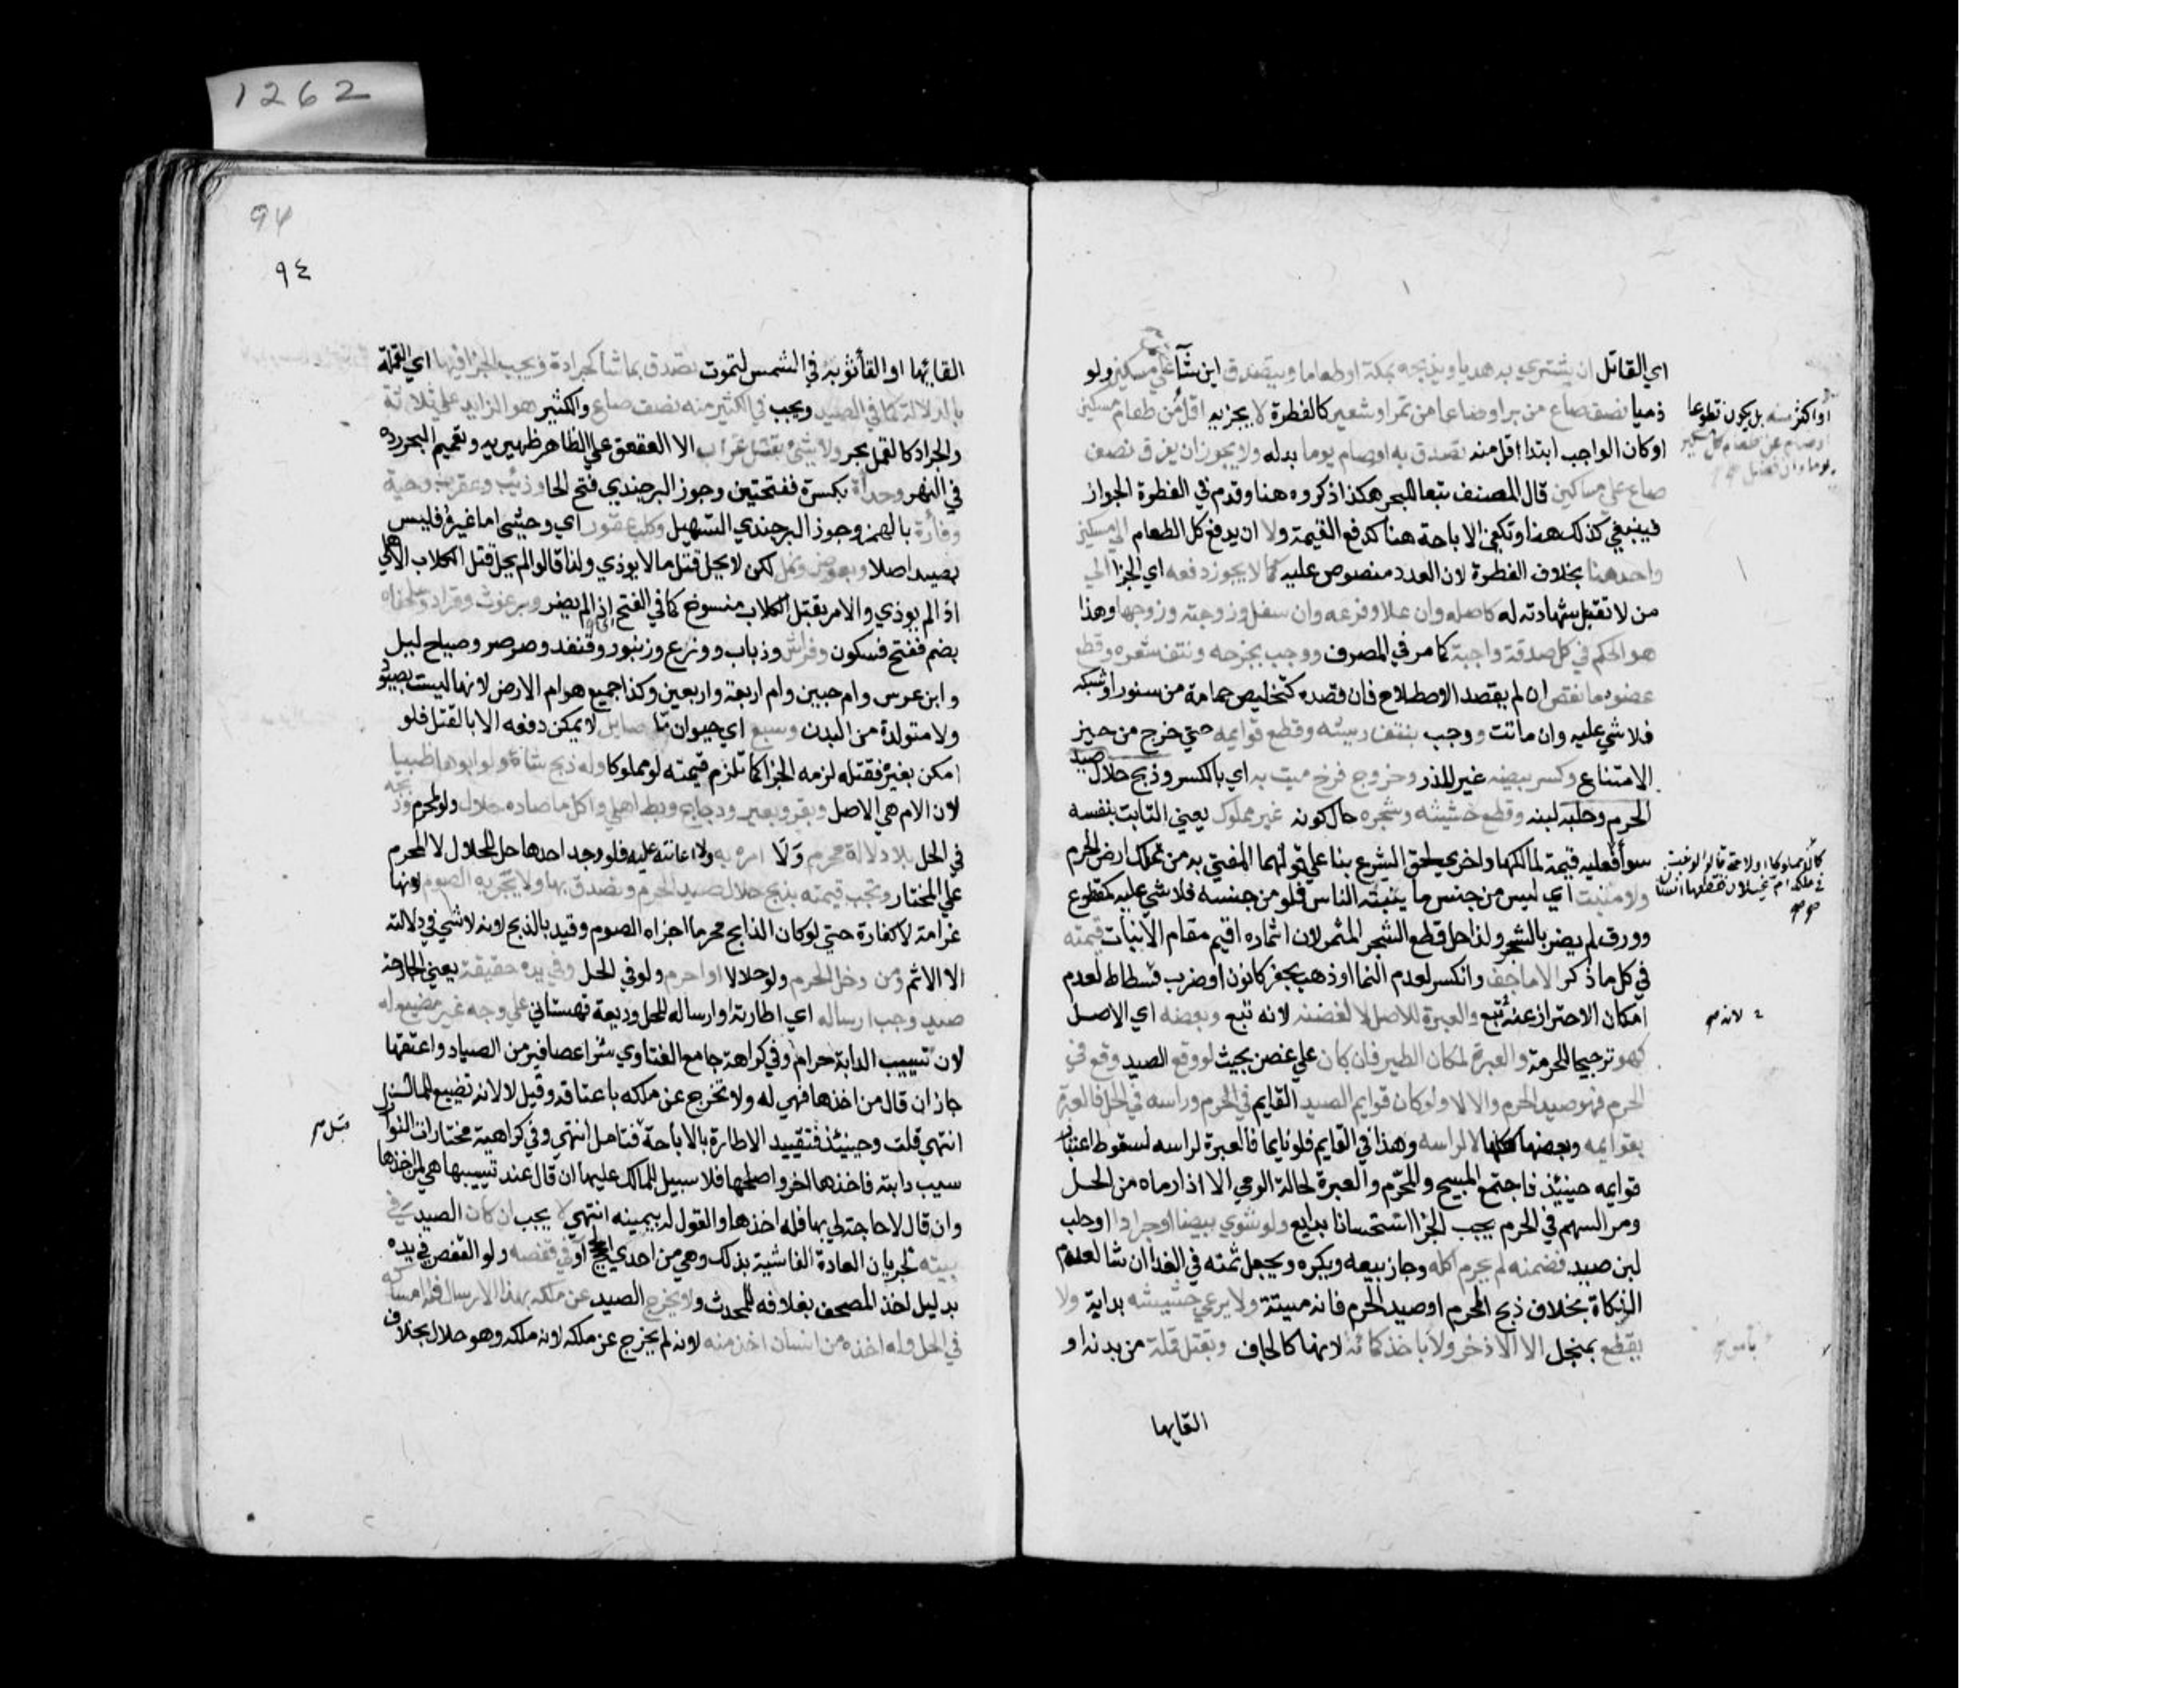 اي القاتل ان يشتري به هديا ويذبحه بمكة او طعاما ويتصدق اين شآ علي مسكين ولو
ذميا نصف صاع من بر او صاعا من تمر او شعير كالفطرة لا يجزيه اقل من طعام مسكين
او كان الواجب ابتدا اقل منه تصدق به او صام يوما بدله ولا يجوز ان يفرق نصف
صاع علي مساكين قال المصنف تبعا للبحر هكذا ذكروه هنا وقدم في الفطرة الجواز
فينبغي كذلك هنا وتكفي الاباحة هنا كدفع القيمة ولا ان يدفع كل الطعام الي مسكين
واحد هنا بخلاف الفطرة لان العدد منصوص عليه كما لا يجوز دفعه اي الجزا الي
من لا تقبل شهادته له كاصله وان علا وفرعه وان سفل وزوجته وزوجها وهذا
هو الحكم في كل صدقة واجبة كما مر في المصرف ووجب بجرحه ونتف شعره وقطع
عضوه ما نقص ان لم يقصد الاصطلاح فان قصده كتخليص حمامة من سنور او شبكه
فلا شي عليه وان ماتت ووجب بنتف ريشه وقطع قوايمه حتي خرج من حيز
الامتناع وكسر بيضه غير المذر وخروج فرخ ميت به اي بالكسر وذبح حلال صيد
الحرم وحلبه لبنه وقطع حشيشه وشجره حال كونه غير مملوك يعني النابت بنفسه
سوا فعليه قيمة لمالكها واخري لحق الشرع بنا علي قولهما المفتي به من تملك ارض الحرم
ولا منبت اي ليس من جنس ما ينبته الناس فلو من جنسه فلا شي عليه كمقلوع
وورق لم يضر بالشجر ولذا حل قطع الشجر المثمر لان اثماره اقيم مقام الانبات قيمته
في كل ما ذكر الا ما جف وانكسر لعدم النما او ذهب بحفر كانون او ضرب فسطاط لعدم
امكان الاحتراز عنه تبع والعبرة للاصل لا لغصنه لانه تبع وبعضه اي الاصل
كهو ترجيحا للحرمة والعبرة لمكان الطير فان كان علي غصن بحيث لو وقع الصيد وقع في
الحرم فهو صيد الحرم والا لا ولو كان قوايم الصيد القايم في الحرم وراسه في الحل فالعبرة
بقوايمه وبعضها ككلها لا لراسه وهذا في القايم فلو نايما فالعبرة لراسه لسقوط اعتبار
قوايمه حينيذ فاجتمع المبيح والمحرم والعبرة لحالة الرمي الا اذا رماه من الحل
ومر السهم في الحرم يجب الجزا استحسانا بدايع ولو شوي بيضا او جرادا او حلب
لبن صيد فضمنه لم يحرم اكله وجاز بيعه ويكره ويجعل ثمنه في الفدا ان شا لعدم
الزكاة بخلاف ذبح المحرم او صيد الحرم فانه ميتة ولا يرعي حشيشه بداية ولا
يقطع بمنجل الا الاذخر ولا باخذ كمائه لانها كالجاف وبقتل قملة من بدنه او
القايها
او اكثر منه بل يكون تطوعا
او صام عن طعام كل مسكين
يوما وان فضل
في ملكه ام غيلان فقطعها انسان
لانه صح
94
٩٤
القائها او القا ثوبه في الشمس لتموت تصدق بما شا كجرادة ويجب الجزا فيها اي القملة
بالدلالة كما في الصيد ويجب في الكثير منه نصف صاع والكثير هو الزايد علي ثلاثة
والجراد كالقمل بحر ولا شئ بقتل غراب الا العقعق علي الظاهر ظهيريه وتعميم البحر رده
في النهر وحدأة بكسرة ففتحتين وجوز البرجندي فتح الحا وذئب وعقرب وحية
وفارة بالهمز وجوز البرجندي التسهيل وكلب عقور اي وحشي اما غيره فليس
بصيد اصلا وبعوض ونمل لكن لا يحل قتل ما لا يوذي ولذا قالوا لم يحل قتل الكلاب الاهلي
اذا لم يوذي والامر بقتل الكلاب منسوخ كما في الفتح اي اذا لم يضر وبرغوث وقراد وسلحفاه
بضم ففتح فسكون وفراش وذباب ووزغ وزنبور وقنفد وصرصر وصياح ليل
وابن عرس وام حبين وام اربعة واربعين وكذا جميع هوام الارض لانها ليست بصيود
ولا متولدة من البدن وسبع اي حيوان ما صايل لا يمكن دفعه الا بالقتل فلو
امكن بغيره فقتله لزمه الجزا كما تلزم قيمته لو مملوكا وله ذبح شاة ولو ابوها ظبيا
لان الام هي الاصل وبقر وبعير ودجاج وبط اهلي واكل ما صاده حلال ولو لمحرم وذبحه
في الحل بلا دلالة محرم وَلَا امره به ولا اعانته عليه فلو وجد احدها حل للحلال لا المحرم
علي المختار وتجب قيمته بذبح حلال صيد الحرم وتصدق بها ولا يجزيه الصوم لانها
غرامة لا كفارة حتي لو كان الذابح محرما اجزاه الصوم وقيد بالذبح لانه لا شي في دلالته
الا الاثم ومن دخل الحرم ولو حلالا او احرم ولو في الحل وفي يده حقيقة يعني الجارحة
صيد وجب ارساله اي اطارته او ارساله للحل وديعة قهستاني علي وجه غير مضيع له
لان تسييب الدابة حرام وفي كراهة جامع الفتاوي شرا عصافير من الصياد واعتقها
جاز ان قال من اخذها فهي له ولا تخرج عن ملكه باعتاقه وقيل لا لانه تضييع للمال
انتهي قلت وحينئذ فتقييد الاطارة بالاباحة فتامل انتهي وفي كراهية مختارات النوازل
سيب دابته فاخذها اخر واصلحها فلا سبيل للمالك عليها ان قال عند تسييبها هي لمن اخذها
وان قال لا حاجة لي بها فله اخذها والقول له بيمينه انتهي لا يجب ان كان الصيد في
بيته لجريان العادة الفاشية بذلك وهي من احدي الحجج او في قفصه ولو القفص في يده
بدليل اخذ المصحف بغلافه للمحدث ولا يخرج الصيد عن ملكه بهذا الارسال فله امساكه
في الحل وله اخذه من انسان اخذ منه لانه لم يخرج عن ملكه لانه ملكه وهو حلال بخلاف
1262